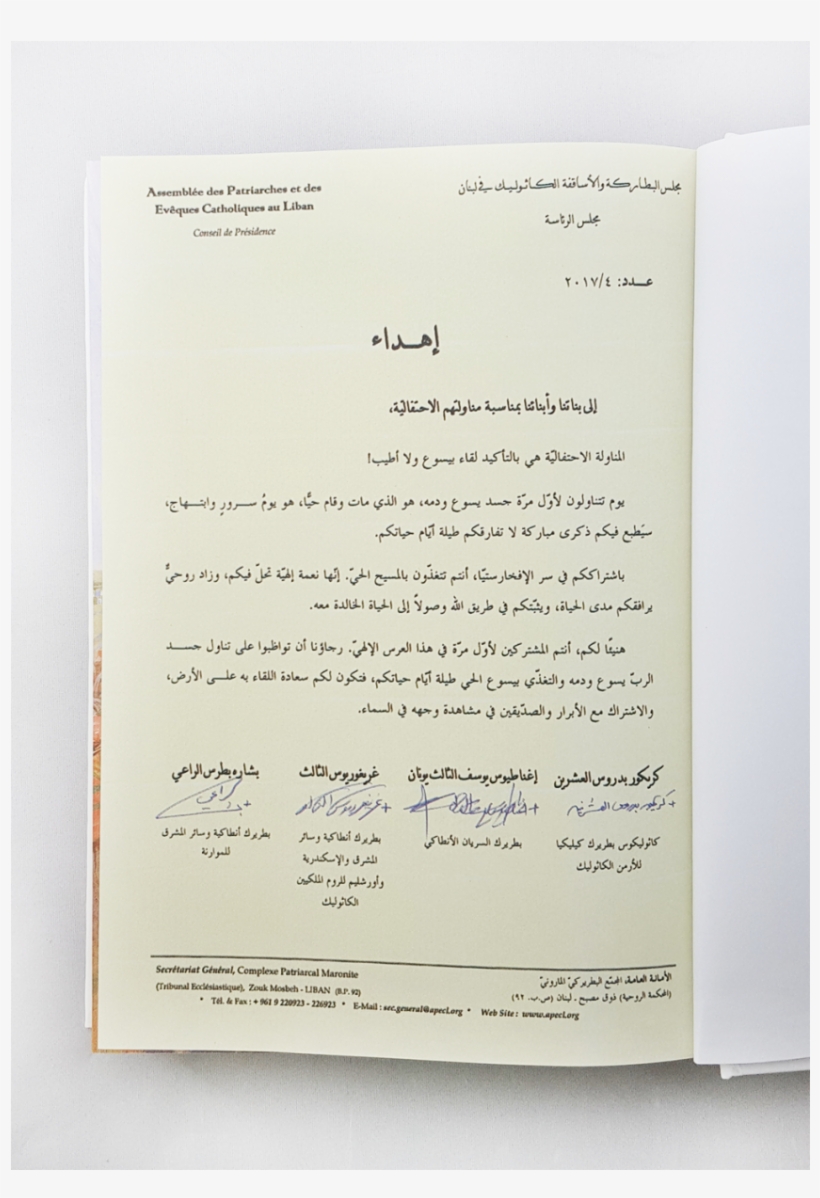 Assemblée des Patriarches et des
Evêques Catholiques au Liban
Conseil de Présidence
مجلس البطاركة والأساقفة الكاثوليك في لبنان
مجلس الرئاسة
عدد: ٢٠١٧/٤
إهداء
إلى بناتنا وأبنائنا بمناسبة مناولتهم الاحتفاليّة،
المناولة الاحتفاليّة هي بالتأكيد لقاء بيسوع ولا أطيب!
يوم تتناولون لأوّل مرّة جسد يسوع ودمه، هو الذي مات وقام حيًّا، هو يومُ سرورٍ وابتهاج،
سيَطبع فيكم ذكرى مباركة لا تفارقكم طيلة أيّام حياتكم.
باشتراككم في سر الإفخارستيّا، أنتم تتغذّون بالمسيح الحيّ. إنّها نعمة إلهيّة تحلّ فيكم، وزاد روحيٌّ
يرافقكم مدى الحياة، ويثبّتكم في طريق الله وصولاً إلى الحياة الخالدة معه.
هنيئًا لكم، أنتم المشتركين لأوّل مرّة في هذا العرس الإلهيّ. رجاؤنا أن تواظبوا على تناول جسد
الربّ يسوع ودمه والتغذّي بيسوع الحي طيلة أيّام حياتكم، فتكون لكم سعادة اللقاء به على الأرض،
والاشتراك مع الأبرار والصدّيقين في مشاهدة وجهه في السماء.
كريكور بدروس العشرين
+ كريكور بدروس العشرين
كاثوليكوس بطريرك كيليكيا
للأرمن الكاثوليك
إغناطيوس يوسف الثالث يونان
بطريرك السريان الأنطاكي
غريغوريوس الثالث
+ غريغوريوس الثالث
بطريرك أنطاكية وسائر
المشرق والإسكندرية
وأورشليم للروم الملكيين
الكاثوليك
بشاره بطرس الراعي
بطريرك أنطاكية وسائر المشرق
للموارنة
Secrétariat Général, Complexe Patriarcal Maronite
(Tribunal Ecclésiastique), Zouk Mosbeh - LIBAN (B.P. 92)
* Tél. & Fax : + 961 9 220923 - 226923 * E-Mail : sec.general@apecl.org * Web Site : www.apecl.org
الأمانة العامة، المجمّع البطريركيّ المارونيّ
(المحكمة الروحية) ذوق مصبح ـ لبنان (ص.ب. ٩٢)